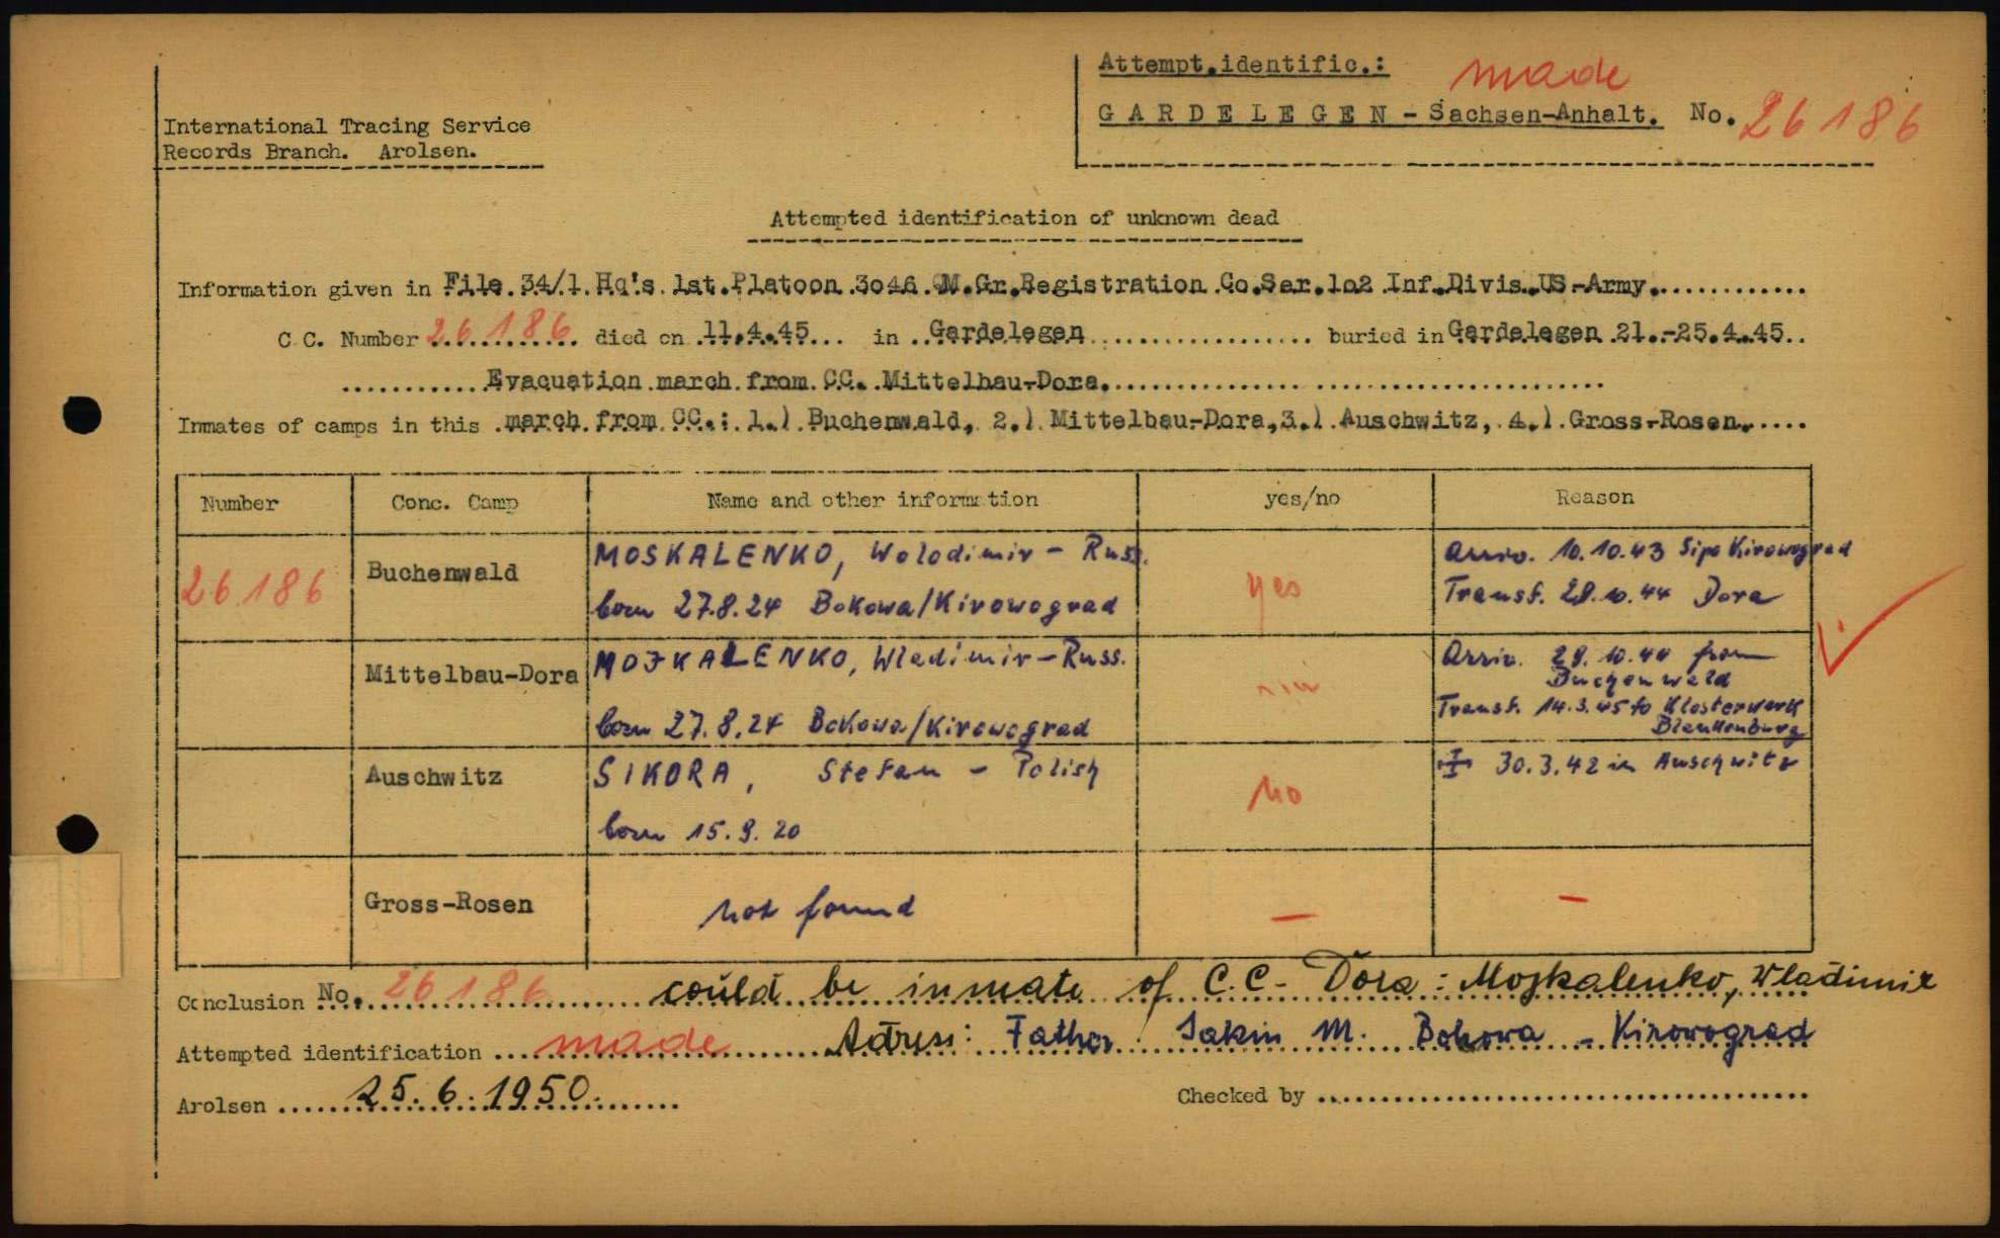 Attempt.identific.: made
GARDELEGEN - Sachsen-Anhalt. No. 26186
International Tracing Service
Records Branch. Arolsen.
Attempted identification of unknown dead
Information given in File 34/1 Hq's 1st.Platoon 3046 QM.Gr.Registration Co.Ser.102 Inf.Divis.US-Army.
C.C. Number 26186 died on 11.4.45 in Gardelegen buried in Gardelegen 21.-25.4.45
Evacuation march from CC. Mittelbau-Dora.
Inmates of camps in this march from CC.: 1.) Buchenwald, 2.) Mittelbau-Dora, 3.) Auschwitz, 4.) Gross-Rosen.
Number Conc. Camp Name and other information yes/no Reason
26186 Buchenwald MOSKALENKO, Wolodimir - Russ. yes Arriv. 10.10.43 Sipo Kirowograd
born 27.8.24 Bokowa/Kirowograd Transf. 28.10.44 Dora
Mittelbau-Dora MOJKALENKO, Wladimir - Russ. Arriv. 28.10.44 from
Buchenwald
Transf. 14.3.45 to Klosterwerk
born 27.8.24 Bokowa/Kirowograd Blankenburg
Auschwitz SIKORA, Stefan - Polish no 30.3.42 in Auschwitz
born 15.9.20
Gross-Rosen not found - -
Conclusion No. 26186 could be inmate of C.C- Dora: Mojkalenko, Wladimir
Attempted identification made Adress: Father Jakin M. Bokowa - Kirowograd
Arolsen 25.6.1950. Checked by